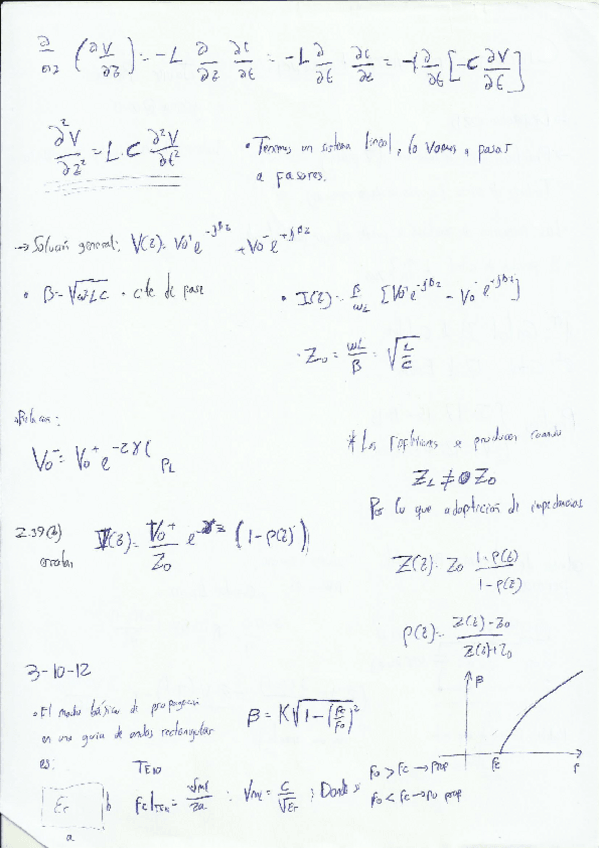 ∂/∂z (∂V/∂z) = -L ∂/∂z ∂i/∂t = -L ∂/∂t ∂i/∂z = -L ∂/∂t [-C ∂V/∂t]
∂²V/∂z² = L·C ∂²V/∂t²
• Tenemos un sistema lineal, lo vamos a pasar
a fasores.
→ Solución general: V(z) = Vo⁺ e^-jβz + Vo⁻ e^+jβz
• β = √ω²LC · cte de fase
• I(z) = β/ωL [Vo⁺ e^-jβz - Vo⁻ e^jβz]
· Zo = ωL/β = √L/C
Vo⁻ = Vo⁺ e^-2γl ρL
* Las reflexiones se producen cuando
ZL ≠ Zo
Por lo que adaptación de impedancias
2.39(b) I(z) = Vo⁺/Zo e^-γz (1-ρ(z))
erratas
Z(z) = Zo 1+ρ(z)/1-ρ(z)
ρ(z) = Z(z)-Zo/Z(z)+Zo
3-10-12
• El modo básico de propagación
en una guía de ondas rectangular
es:
β = K√1-(fc/fo)²
β
fc
f
TE10
fo > fc → prop
Er
b
a
fc|TE10 = vml/2a ; Vml = c/√Er ; Donde
fo < fc → no prop